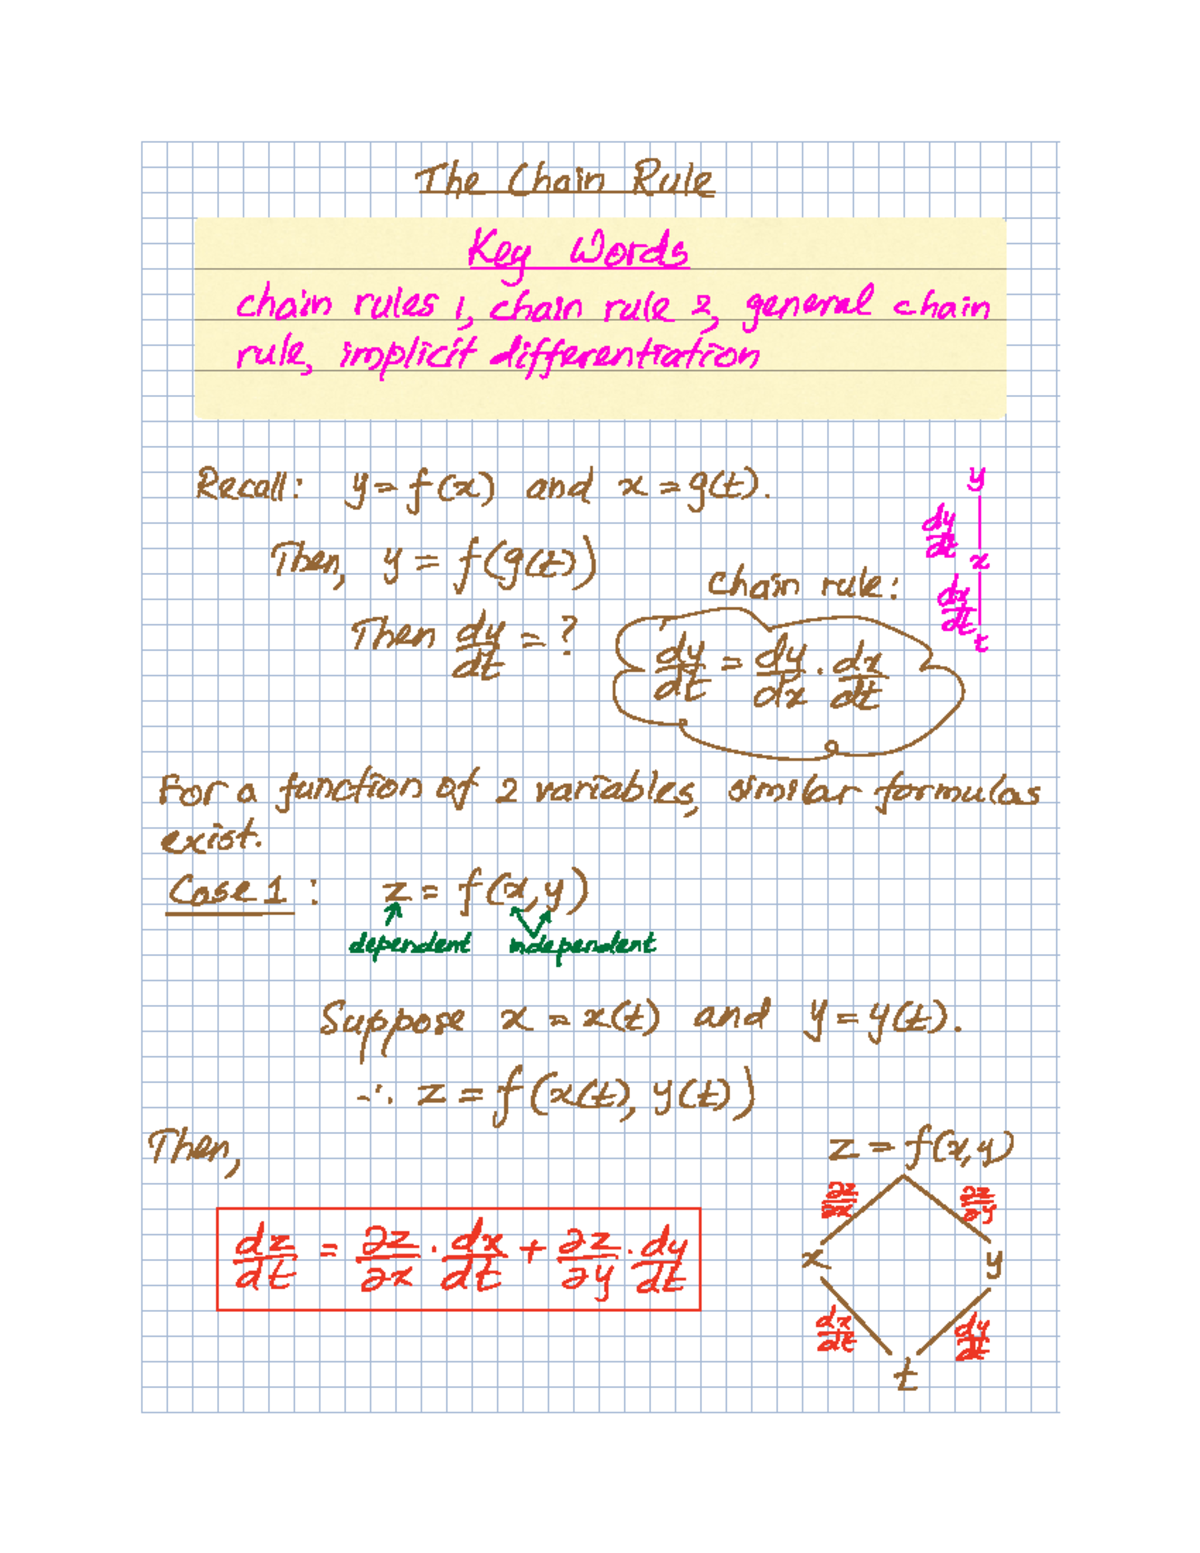 The Chain Rule
Key Words
chain rules 1, chain rule 2, general chain
rule, implicit differentiation
Recall: y = f(x) and x = g(t).
Then, y = f(g(t))
Then dy/dt = ?
chain rule:
dy/dt = dy/dx · dx/dt
y
x
dx/dt
t
For a function of 2 variables, similar formulas
exist.
Case 1 : z = f(x,y)
dependent independent
Suppose x = x(t) and y = y(t).
∴ z = f(x(t), y(t))
Then,
dz/dt = ∂z/∂x · dx/dt + ∂z/∂y · dy/dt
z = f(x,y)
∂z/∂x ∂z/∂y
x y
dx/dt dy/dt
t